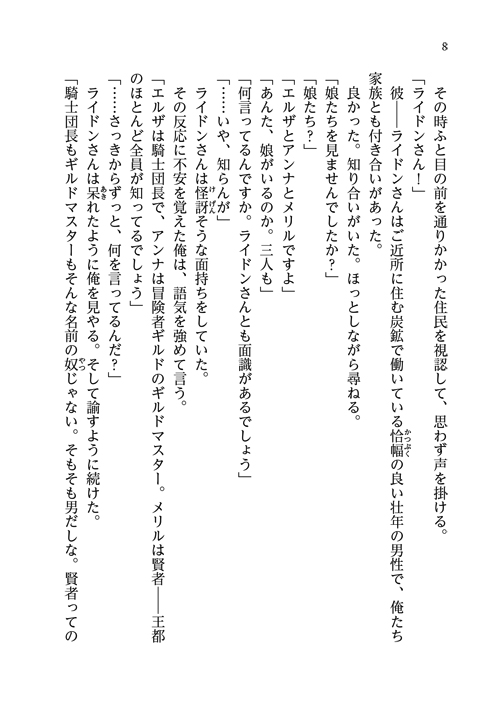 8
その時ふと目の前を通りかかった住民を視認して、思わず声を掛ける。
「ライドンさん！」
彼――ライドンさんはご近所に住む炭鉱で働いている恰幅の良い壮年の男性で、俺たち
家族とも付き合いがあった。
良かった。知り合いがいた。ほっとしながら尋ねる。
「娘たちを見ませんでしたか？」
「娘たち？」
「エルザとアンナとメリルですよ」
「あんた、娘がいるのか。三人も」
「何言ってるんですか。ライドンさんとも面識があるでしょう」
「……いや、知らんが」
ライドンさんは怪訝そうな面持ちをしていた。
その反応に不安を覚えた俺は、語気を強めて言う。
「エルザは騎士団長で、アンナは冒険者ギルドのギルドマスター。メリルは賢者――王都
のほとんど全員が知ってるでしょう」
「……さっきからずっと、何を言ってるんだ？」
ライドンさんは呆れたように俺を見やる。そして諭すように続けた。
「騎士団長もギルドマスターもそんな名前の奴じゃない。そもそも男だしな。賢者っての